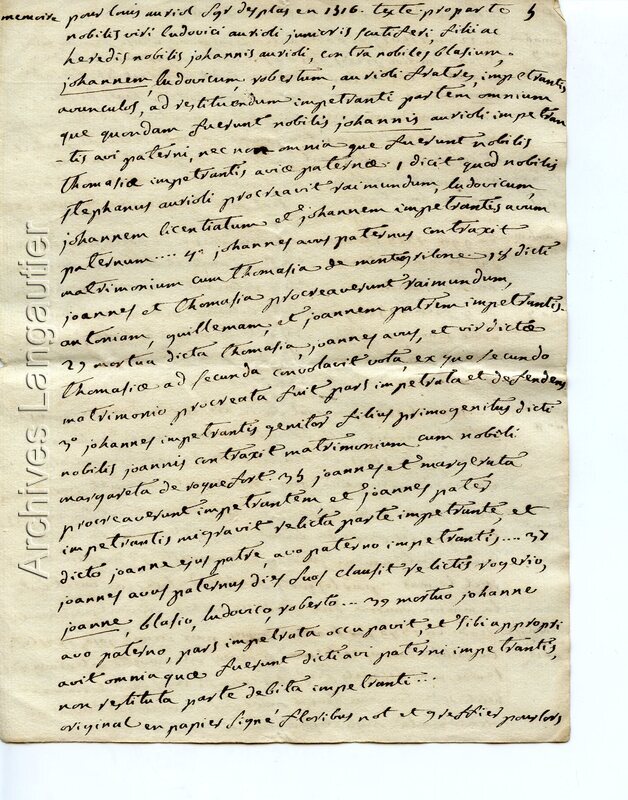 memoire pour louis auriol sgr desplas en 1516. texte. pro parte 5
nobilis viri ludovici aurioli junioris scutiferi, filii ac
heredis nobilis johannis aurioli, contra nobiles blasium,
johannem, ludovicum, robertum, aurioli fratres, impetrantis
avunculos, ad restituendum impetranti partem omnium
que quondam fuerunt nobilis johannis aurioli impetran
-tis avi paterni, nec non omnia que fuerunt nobilis
thomasiæ impetrantis aviæ paternæ. 1 dicit quod nobilis
stephanus aurioli procreavit raimundum, ludovicum,
johannem licentiatum et johannem impetrantis avum
paternum.... 4° johannes avus paternus contraxit
matrimonium cum thomasia de 18 dicti
joannes et thomasia procreaverunt raimundum,
antoniam, guillemam, et joannem patrem impetrantis.
29 mortua dicta thomasia, joannes avus, et vir dictæ
thomasiæ ad secunda convolavit vota, ex quo secundo
matrimonio procreata fuit pars impetrata et defendens
3° johannes impetrantis genitor filius primogenitus dicti
nobilis joannis contraxit matrimonium cum nobili
margareta de roquefort. 35 joannes et margereta
procreaverunt impetrantem et joannes pater
impetrantis migravit relicta parte impetrante, et
dicto joanne ejus patre, avo paterno impetrantis.... 37
joannes avus paternus dies suos clausit relictis rogerio,
joanne, blasio, ludovico, roberto... 39 mortuo johanne
avo paterno, pars impetrata occupavit, et sibi appropri
avit omnia quæ fuerunt dicti avi paterni impetrantis,
non restituta parte debita impetranti...
original en papier signé floribus not et greffier pour lors
Archives Langautier